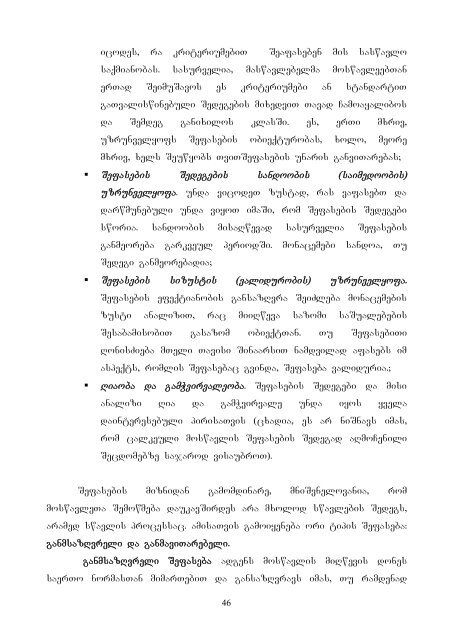 იცოდეს, რა კრიტერიუმებით შეაფასებენ მის სასწავლო
საქმიანობას. სასურველია, მასწავლებელმა მოსწავლეებთან
ერთად შეიმუშავოს ეს კრიტერიუმები ან სტანდარტით
გათვალისწინებული შედეგების მიხედვით თავად ჩამოაყალიბოს
და შემდეგ განიხილოს კლასში. ეს, ერთი მხრივ,
უზრუნველყოფს შეფასების ობიექტურობას, ხოლო, მეორე
მხრივ, ხელს შეუწყობს თვითშეფასების უნარის განვითარებას;
▪ შეფასების შედეგების სანდოობის (საიმედოობის)
უზრუნველყოფა. უნდა ვიცოდეთ ზუსტად, რას ვაფასებთ და
დარწმუნებული უნდა ვიყოთ იმაში, რომ შეფასების შედეგები
სწორია. სანდოობის მისაღწევად სასურველია შეფასების
განმეორება გარკვეულ პერიოდში. მონაცემები სანდოა, თუ
შედეგი განმეორებადია;
▪ შეფასების სიზუსტის (ვალიდურობის) უზრუნველყოფა.
შეფასების ეფექტიანობის განსაზღვრა შეიძლება მონაცემების
ზუსტი ანალიზით, რაც მიიღწევა საზომი საშუალებების
შესაბამისობით გასაზომ ობიექტთან. თუ შეფასებითი
ღონისძიება მთელი თავისი შინაარსით ნამდვილად აფასებს იმ
ასპექტს, რომლის შეფასებაც გვინდა, შეფასება ვალიდურია.;
▪ ღიაობა და გამჭვირვალეობა. შეფასების შედეგები და მისი
ანალიზი ღია და გამჭვირვალე უნდა იყოს ყველა
დაინტერესებული პირისათვის (ცხადია, ეს არ ნიშნავს იმას,
რომ ცალკეული მოსწავლის შეფასების შედეგად აღმოჩენილი
შეცდომებზე საჯაროდ ვისაუბროთ).
შეფასების მიზნიდან გამომდინარე, მნიშვნელოვანია, რომ
მოსწავლეთა შემოწმება დაუკავშირდეს არა მხოლოდ სწავლების შედეგს,
არამედ სწავლის პროცესსაც. ამისათვის გამოიყენება ორი ტიპის შეფასება:
განმსაზღვრელი და განმავითარებელი.
განმსაზღვრელი შეფასება ადგენს მოსწავლის მიღწევის დონეს
საერთო ნორმასთან მიმართებით და განსაზღვრავს იმას, თუ რამდენად
46